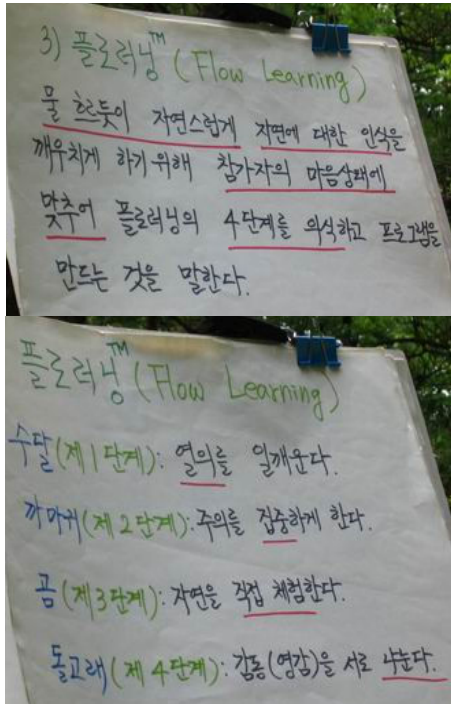 3) 플로러닝™ (Flow Learning)
물 흐르듯이 자연스럽게 자연에 대한 인식을
깨우치게 하기 위해 참가자의 마음상태에
맞추어 플로러닝의 4단계를 의식하고 프로그램을
만드는 것을 말한다.
플로러닝™ (Flow Learning)
수달(제1단계): 열의를 일깨운다.
까마귀(제2단계): 주의를 집중하게 한다.
곰(제3단계): 자연을 직접 체험한다.
돌고래(제4단계): 감동(영감)을 서로 나눈다.